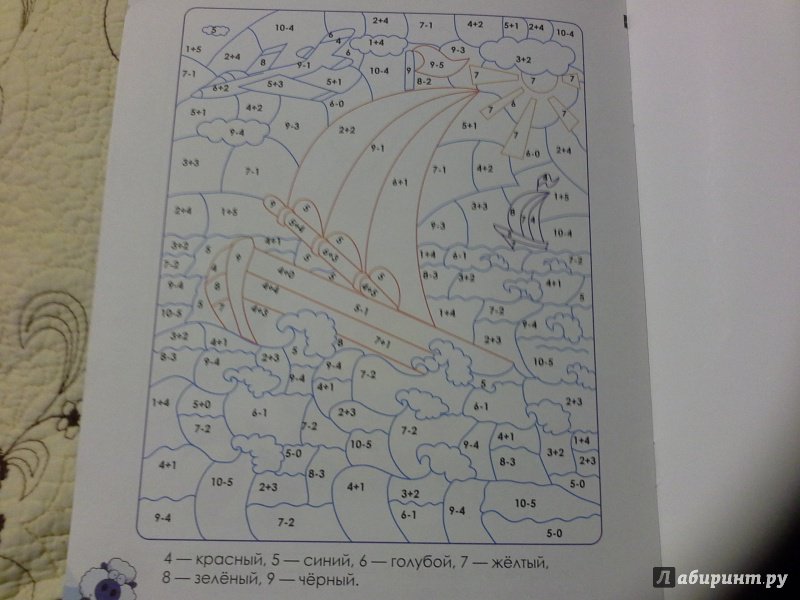 10-4 2+4 7-1 4+2 5+1 2+4 10-4
5 6 4 1+4
1+5 2+4 8 9-1 6 9-3 3+2
7-1 10-4 9 9-5 7 7 7
6+2 5+3 5+1 8-2
5+1 4+2 6-0 7 6 7
9-4 9-3 2+2 5+1
9-1 6-0 2+4
3+3 7-1 6+1 7-1 4+2
4
2+4 1+5 9 5 3+3 8 7 4 1+5
5 9-3 10-4
3+2 5 9 4+1 1+4 6-1 7-2
7-2 4 5 5 5 8-3 3+2 4+1
9-4 8 4+0 4+5 5
4+4
10-5 5 7 4+3 5-1 1+4 7-2 9-4
3+2 4+1 8 7+1 2+3
8-3 9-4 2+3 5 9-4 7-2 10-5
9-4 4+1 5
1+4 5+0 6-1 2+3 6-1 2+3
7-2 7-2 7-2
10-5 9-4 4+1 1+4
4+1 5-0 8-3 8-3 3+2 2+3
10-5 2+3 4+1 3+2 5-0
9-4 7-2 6-1 9-4 10-5 5-0
4 — красный, 5 — синий, 6 — голубой, 7 — жёлтый,
8 — зелёный, 9 — чёрный.
Лабиринт.ру